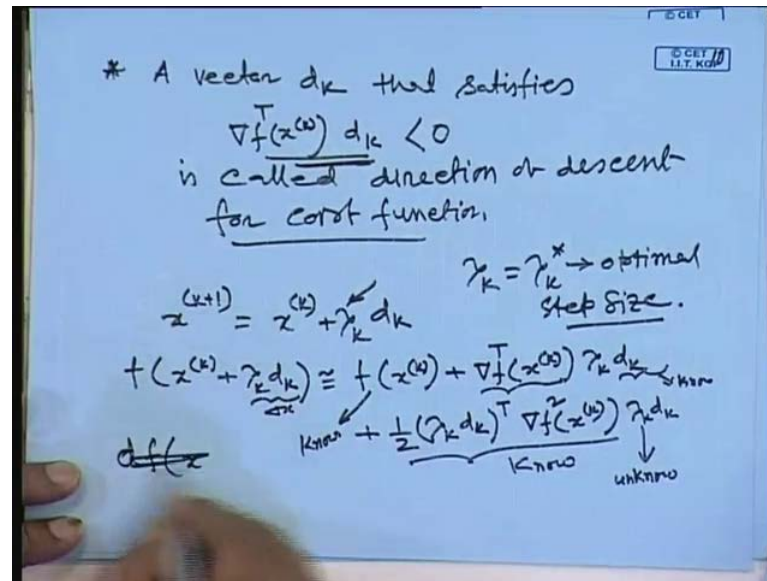 © CET
© CET
I.I.T. KGP
10
* A vector dₖ that satisfies
∇fᵀ(x⁽ᵏ⁾) dₖ < 0
is called direction of descent
for cost function.
λₖ = λₖ* → optimal
step size.
x⁽ᵏ⁺¹⁾ = x⁽ᵏ⁾ + λₖ dₖ
f(x⁽ᵏ⁾ + λₖdₖ) ≅ f(x⁽ᵏ⁾) + ∇fᵀ(x⁽ᵏ⁾) λₖ dₖ → know
Δx
know + 1/2 (λₖdₖ)ᵀ ∇f²(x⁽ᵏ⁾) λₖdₖ
know
unknow
df(x